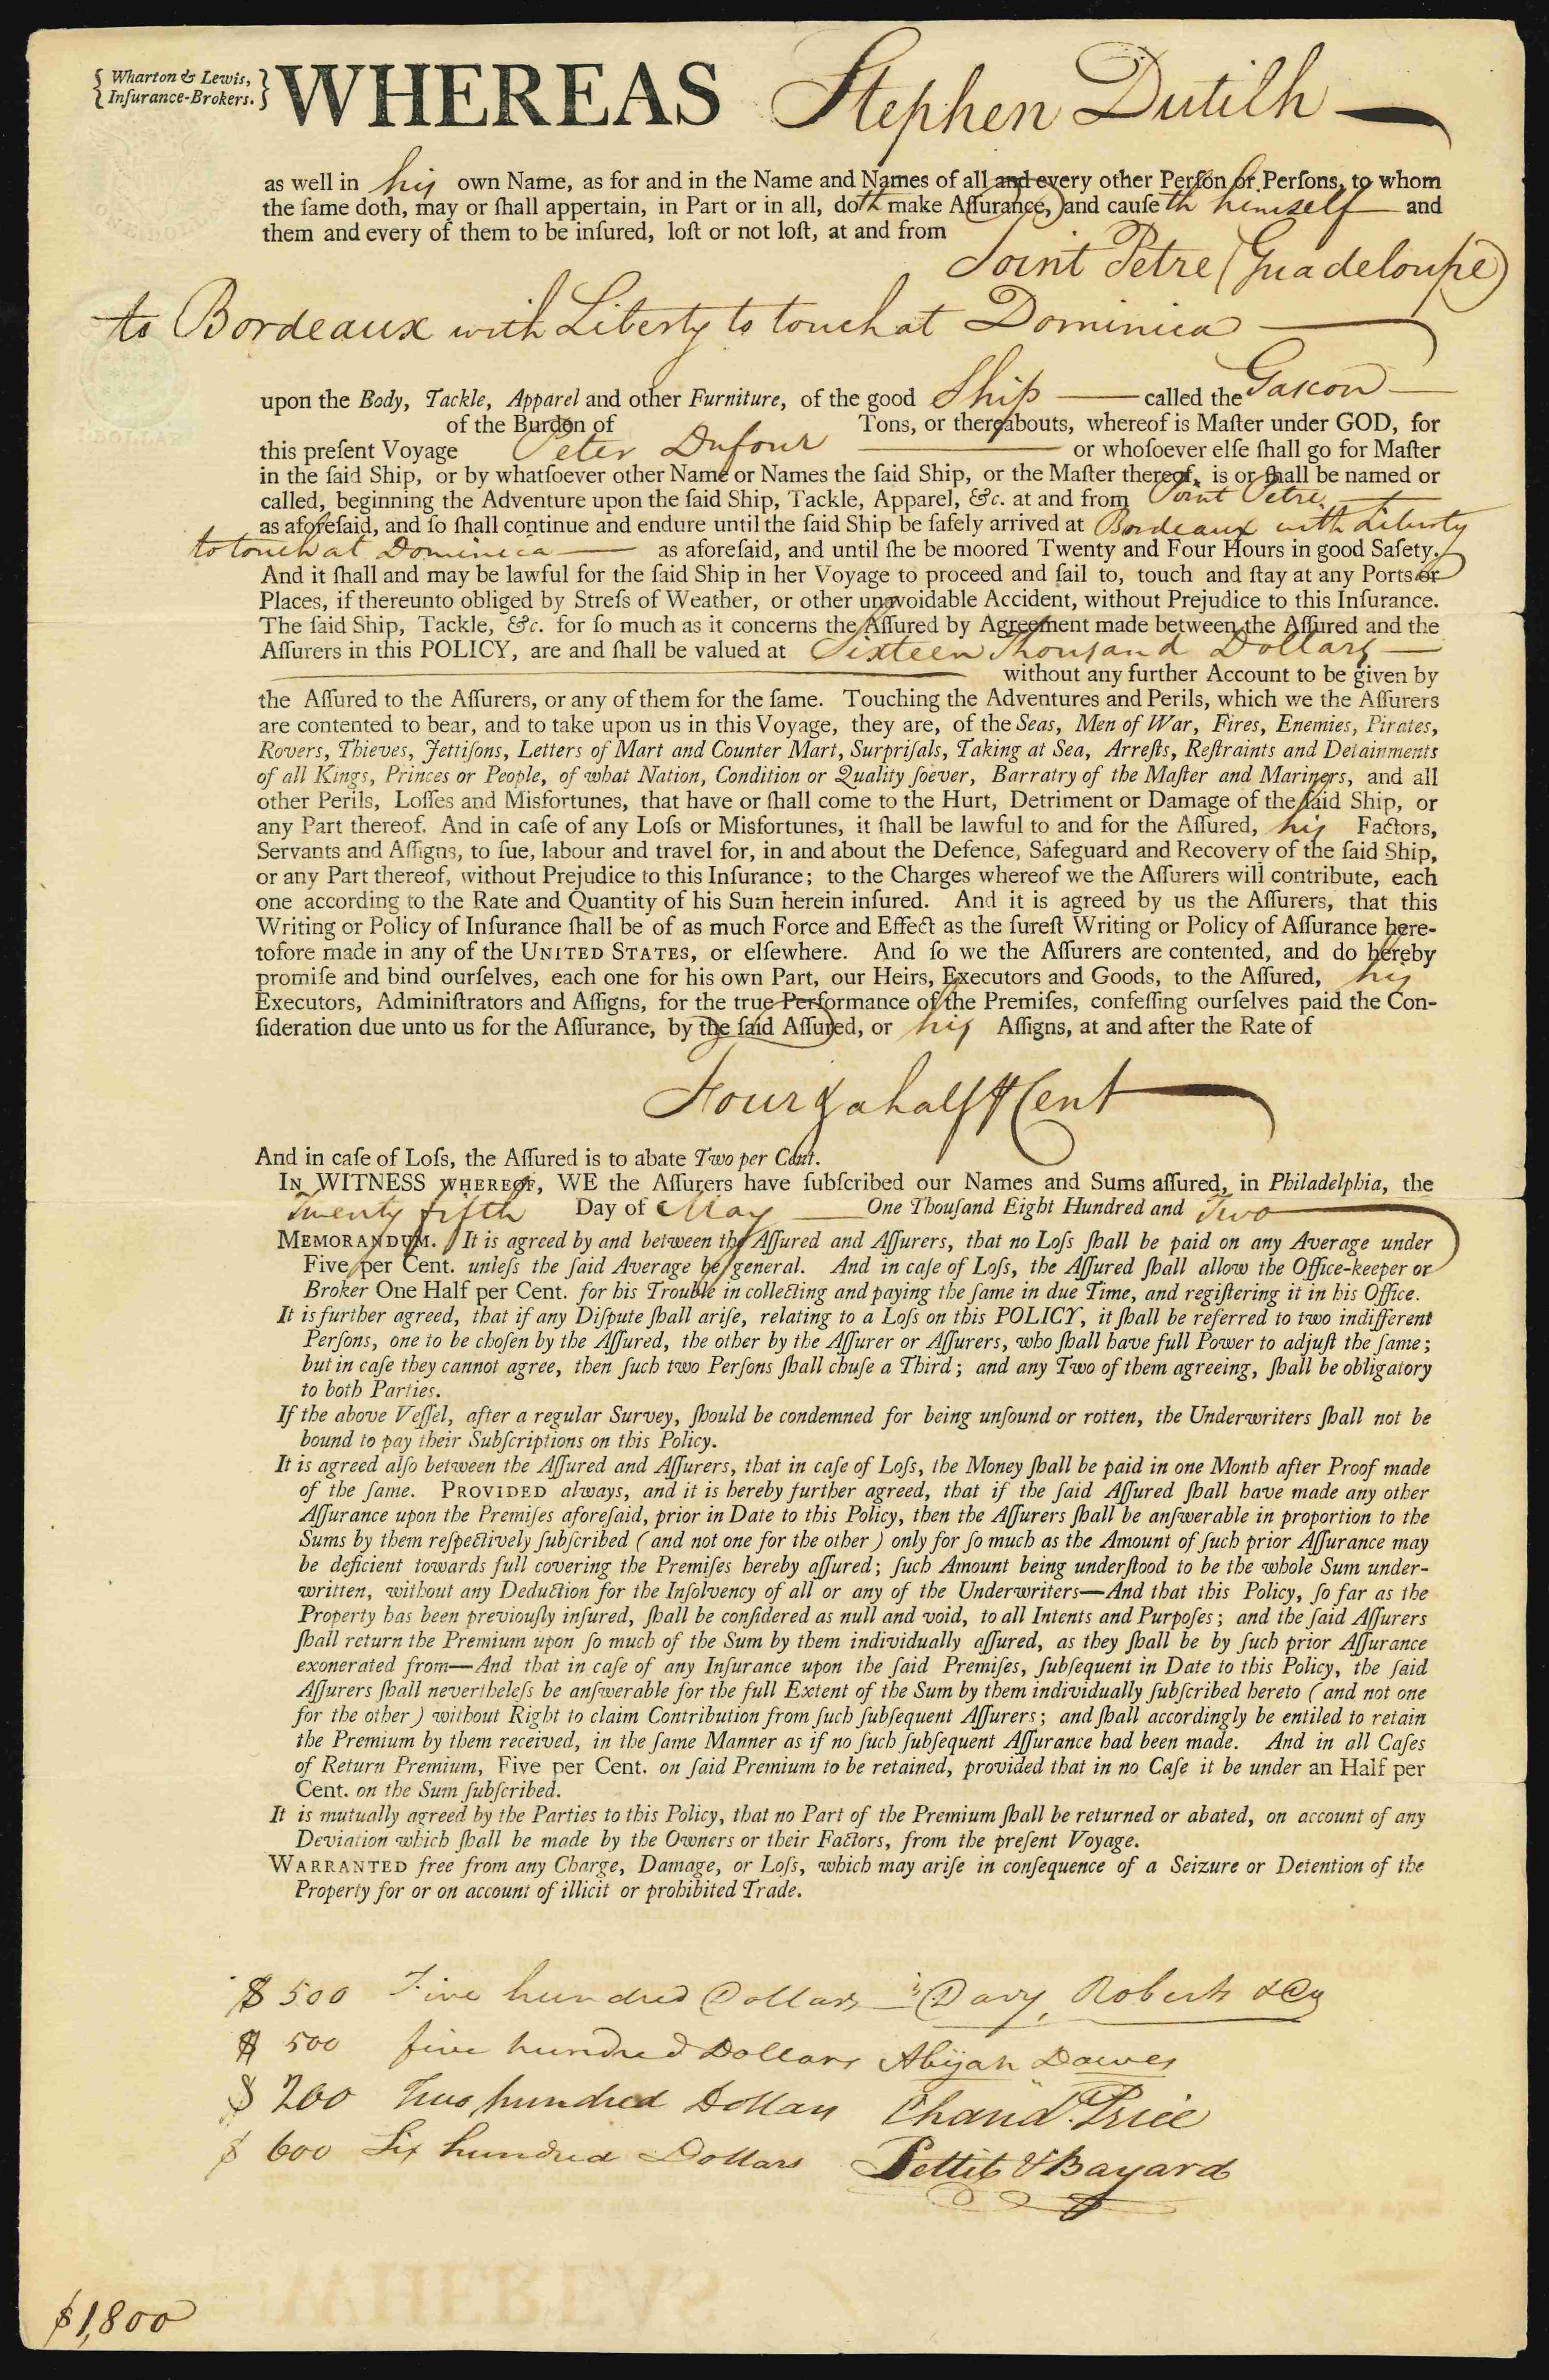 { Wharton & Lewis, }
{ Inſurance-Brokers. }
WHEREAS Stephen Dutilh
as well in his own Name, as for and in the Name and Names of all and every other Perſon or Perſons, to whom
the ſame doth, may or ſhall appertain, in Part or in all, doth make Aſſurance, and cauſeth himself and
them and every of them to be inſured, loſt or not loſt, at and from
Point Petre (Guadeloupe)
to Bordeaux with Liberty to touch at Dominica
upon the Body, Tackle, Apparel and other Furniture, of the good Ship called the Gascon
of the Burden of Tons, or thereabouts, whereof is Maſter under GOD, for
this preſent Voyage Peter Dufour or whoſoever elſe ſhall go for Maſter
in the ſaid Ship, or by whatſoever other Name or Names the ſaid Ship, or the Maſter thereof, is or ſhall be named or
called, beginning the Adventure upon the ſaid Ship, Tackle, Apparel, &c. at and from Point Petre
as aforeſaid, and ſo ſhall continue and endure until the ſaid Ship be ſafely arrived at Bordeaux with Liberty
to touch at Dominica as aforeſaid, and until ſhe be moored Twenty and Four Hours in good Safety.
And it ſhall and may be lawful for the ſaid Ship in her Voyage to proceed and ſail to, touch and ſtay at any Ports or
Places, if thereunto obliged by Streſs of Weather, or other unavoidable Accident, without Prejudice to this Inſurance.
The ſaid Ship, Tackle, &c. for ſo much as it concerns the Aſſured by Agreement made between the Aſſured and the
Aſſurers in this POLICY, are and ſhall be valued at Sixteen Thousand Dollars
without any further Account to be given by
the Aſſured to the Aſſurers, or any of them for the ſame. Touching the Adventures and Perils, which we the Aſſurers
are contented to bear, and to take upon us in this Voyage, they are, of the Seas, Men of War, Fires, Enemies, Pirates,
Rovers, Thieves, Jettiſons, Letters of Mart and Counter Mart, Surpriſals, Taking at Sea, Arreſts, Reſtraints and Detainments
of all Kings, Princes or People, of what Nation, Condition or Quality ſoever, Barratry of the Maſter and Mariners, and all
other Perils, Loſſes and Misfortunes, that have or ſhall come to the Hurt, Detriment or Damage of the ſaid Ship, or
any Part thereof. And in caſe of any Loſs or Misfortunes, it ſhall be lawful to and for the Aſſured, his Factors,
Servants and Aſſigns, to ſue, labour and travel for, in and about the Defence, Safeguard and Recovery of the ſaid Ship,
or any Part thereof, without Prejudice to this Inſurance; to the Charges whereof we the Aſſurers will contribute, each
one according to the Rate and Quantity of his Sum herein inſured. And it is agreed by us the Aſſurers, that this
Writing or Policy of Inſurance ſhall be of as much Force and Effect as the ſureſt Writing or Policy of Aſſurance here-
tofore made in any of the UNITED STATES, or elſewhere. And ſo we the Aſſurers are contented, and do hereby
promiſe and bind ourſelves, each one for his own Part, our Heirs, Executors and Goods, to the Aſſured, his
Executors, Adminiſtrators and Aſſigns, for the true Performance of the Premiſes, confeſſing ourſelves paid the Con-
ſideration due unto us for the Aſſurance, by the ſaid Aſſured, or his Aſſigns, at and after the Rate of
Four & a half ⅌ Cent
And in caſe of Loſs, the Aſſured is to abate Two per Cent.
IN WITNESS WHEREOF, WE the Aſſurers have ſubſcribed our Names and Sums aſſured, in Philadelphia, the
Twenty fifth Day of May One Thouſand Eight Hundred and Two
MEMORANDUM. It is agreed by and between the Aſſured and Aſſurers, that no Loſs ſhall be paid on any Average under
Five per Cent. unleſs the ſaid Average be general. And in caſe of Loſs, the Aſſured ſhall allow the Office-keeper or
Broker One Half per Cent. for his Trouble in collecting and paying the ſame in due Time, and regiſtering it in his Office.
It is further agreed, that if any Diſpute ſhall ariſe, relating to a Loſs on this POLICY, it ſhall be referred to two indifferent
Perſons, one to be choſen by the Aſſured, the other by the Aſſurer or Aſſurers, who ſhall have full Power to adjuſt the ſame;
but in caſe they cannot agree, then ſuch two Perſons ſhall chuſe a Third; and any Two of them agreeing, ſhall be obligatory
to both Parties.
If the above Veſſel, after a regular Survey, ſhould be condemned for being unſound or rotten, the Underwriters ſhall not be
bound to pay their Subſcriptions on this Policy.
It is agreed alſo between the Aſſured and Aſſurers, that in caſe of Loſs, the Money ſhall be paid in one Month after Proof made
of the ſame. PROVIDED always, and it is hereby further agreed, that if the ſaid Aſſured ſhall have made any other
Aſſurance upon the Premiſes aforeſaid, prior in Date to this Policy, then the Aſſurers ſhall be anſwerable in proportion to the
Sums by them reſpectively ſubſcribed ( and not one for the other ) only for ſo much as the Amount of ſuch prior Aſſurance may
be deficient towards full covering the Premiſes hereby aſſured; ſuch Amount being underſtood to be the whole Sum under-
written, without any Deduction for the Inſolvency of all or any of the Underwriters—And that this Policy, ſo far as the
Property has been previouſly inſured, ſhall be conſidered as null and void, to all Intents and Purpoſes; and the ſaid Aſſurers
ſhall return the Premium upon ſo much of the Sum by them individually aſſured, as they ſhall be by ſuch prior Aſſurance
exonerated from—And that in caſe of any Inſurance upon the ſaid Premiſes, ſubſequent in Date to this Policy, the ſaid
Aſſurers ſhall nevertheleſs be anſwerable for the full Extent of the Sum by them individually ſubſcribed hereto ( and not one
for the other ) without Right to claim Contribution from ſuch ſubſequent Aſſurers; and ſhall accordingly be entiled to retain
the Premium by them received, in the ſame Manner as if no ſuch ſubſequent Aſſurance had been made. And in all Caſes
of Return Premium, Five per Cent. on ſaid Premium to be retained, provided that in no Caſe it be under an Half per
Cent. on the Sum ſubſcribed.
It is mutually agreed by the Parties to this Policy, that no Part of the Premium ſhall be returned or abated, on account of any
Deviation which ſhall be made by the Owners or their Factors, from the preſent Voyage.
WARRANTED free from any Charge, Damage, or Loſs, which may ariſe in conſequence of a Seizure or Detention of the
Property for or on account of illicit or prohibited Trade.
$ 500 Five hundred Dollars Davy, Roberts & Co
$ 500 five hundred Dollars Abijah Dawes
$ 200 Two hundred Dollars Chand. Price
$ 600 Six hundred Dollars Pettit & Bayard
$1,800